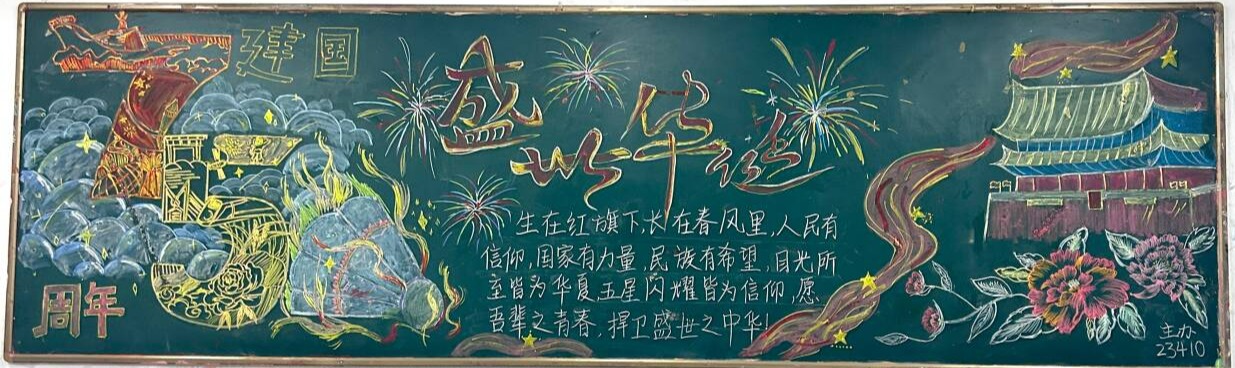 建国
75
周年
盛世华诞
生在红旗下,长在春风里,人民有
信仰,国家有力量,民族有希望,目光所
至皆为华夏,五星闪耀皆为信仰,愿
吾辈之青春,捍卫盛世之中华!
主办
23410